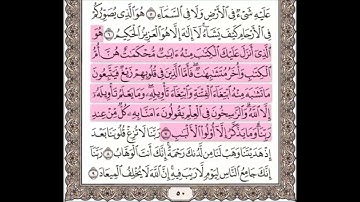 عَلَيْهِ شَىْءٌ فِى ٱلْأَرْضِ وَلَا فِى ٱلسَّمَآءِ ۝٥ هُوَ ٱلَّذِى يُصَوِّرُكُمْ
فِى ٱلْأَرْحَامِ كَيْفَ يَشَآءُ لَآ إِلَٰهَ إِلَّا هُوَ ٱلْعَزِيزُ ٱلْحَكِيمُ ۝٦ هُوَ
ٱلَّذِىٓ أَنزَلَ عَلَيْكَ ٱلْكِتَٰبَ مِنْهُ ءَايَٰتٌ مُّحْكَمَٰتٌ هُنَّ أُمُّ
ٱلْكِتَٰبِ وَأُخَرُ مُتَشَٰبِهَٰتٌ فَأَمَّا ٱلَّذِينَ فِى قُلُوبِهِمْ زَيْغٌ فَيَتَّبِعُونَ
مَا تَشَٰبَهَ مِنْهُ ٱبْتِغَآءَ ٱلْفِتْنَةِ وَٱبْتِغَآءَ تَأْوِيلِهِۦ وَمَا يَعْلَمُ تَأْوِيلَهُۥٓ
إِلَّا ٱللَّهُ وَٱلرَّٰسِخُونَ فِى ٱلْعِلْمِ يَقُولُونَ ءَامَنَّا بِهِۦ كُلٌّ مِّنْ عِندِ
رَبِّنَا وَمَا يَذَّكَّرُ إِلَّآ أُو۟لُوا۟ ٱلْأَلْبَٰبِ ۝٧ رَبَّنَا لَا تُزِغْ قُلُوبَنَا بَعْدَ
إِذْ هَدَيْتَنَا وَهَبْ لَنَا مِن لَّدُنكَ رَحْمَةً إِنَّكَ أَنتَ ٱلْوَهَّابُ ۝٨ رَبَّنَآ
إِنَّكَ جَامِعُ ٱلنَّاسِ لِيَوْمٍ لَّا رَيْبَ فِيهِ إِنَّ ٱللَّهَ لَا يُخْلِفُ ٱلْمِيعَادَ ۝٩
٥٠